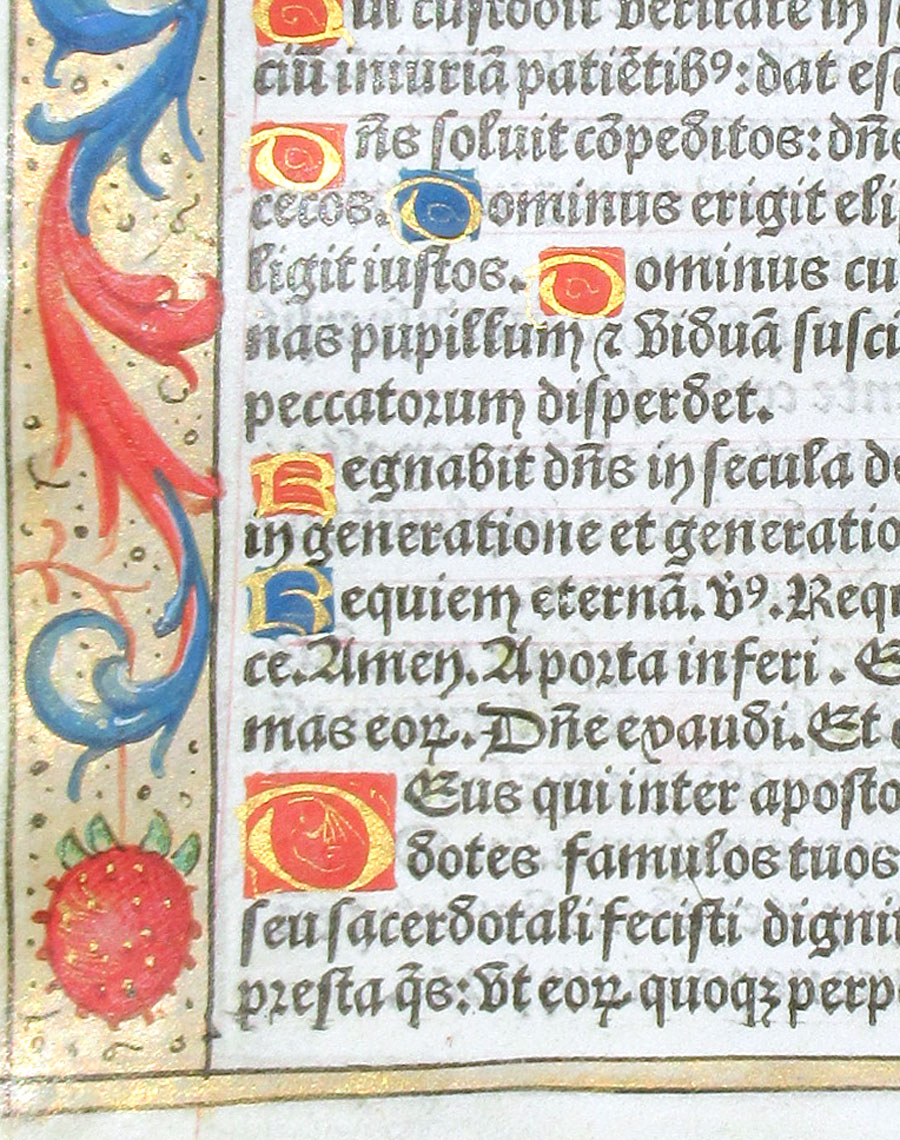 Qui custodit veritatē in se
ciū iniuriā patiētibꝰ: dat esc
Dñs soluit cōpeditos: dñs
cecos. Dominus erigit eli
ligit iustos. Dominus cu
nas pupillum ⁊ viduā susci
peccatorum disperdet.
Regnabit dñs in secula de
in generatione et generatio
Requiem eternā. v̄ꝰ. Requ
ce. Amen. A porta inferi. E
mas eoꝝ. Dñe exaudi. Et c
DEus qui inter aposto
dotes famulos tuos
seu sacerdotali fecisti digni
presta q̄s: vt eoꝝ quoqꝫ perpe